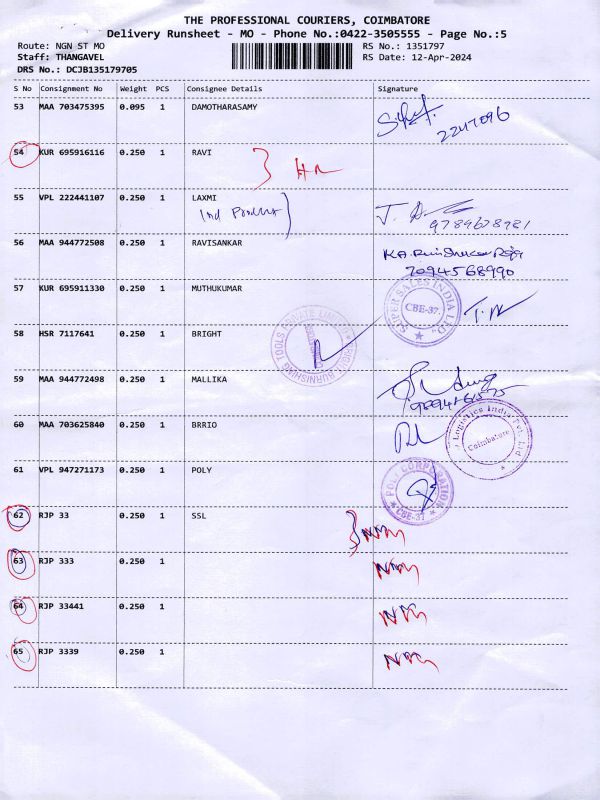 THE PROFESSIONAL COURIERS, COIMBATORE
Delivery Runsheet - MO - Phone No.:0422-3505555 - Page No.:5
Route: NGN ST MO RS No.: 1351797
Staff: THANGAVEL RS Date: 12-Apr-2024
DRS No.: DCJB135179705
S No Consignment No Weight PCS Consignee Details Signature
53 MAA 703475395 0.095 1 DAMOTHARASAMY
2247096
54 KUR 695916116 0.250 1 RAVI
55 VPL 222441107 0.250 1 LAXMI
Ind Product
9789678981
56 MAA 944772508 0.250 1 RAVISANKAR
7094568990
57 KUR 695911330 0.250 1 MUTHUKUMAR
SUPER SALES INDIA LTD.
CBE-37.
58 HSR 7117641 0.250 1 BRIGHT
BURNISHING TOOLS PRIVATE LIMITED
59 MAA 944772498 0.250 1 MALLIKA
60 MAA 703625840 0.250 1 BRRIO
Logistics India Pvt. Ltd
Coimbatore
61 VPL 947271173 0.250 1 POLY
CORPORATION
CBE-37
62 RJP 33 0.250 1 SSL
63 RJP 333 0.250 1
64 RJP 33441 0.250 1
65 RJP 3339 0.250 1